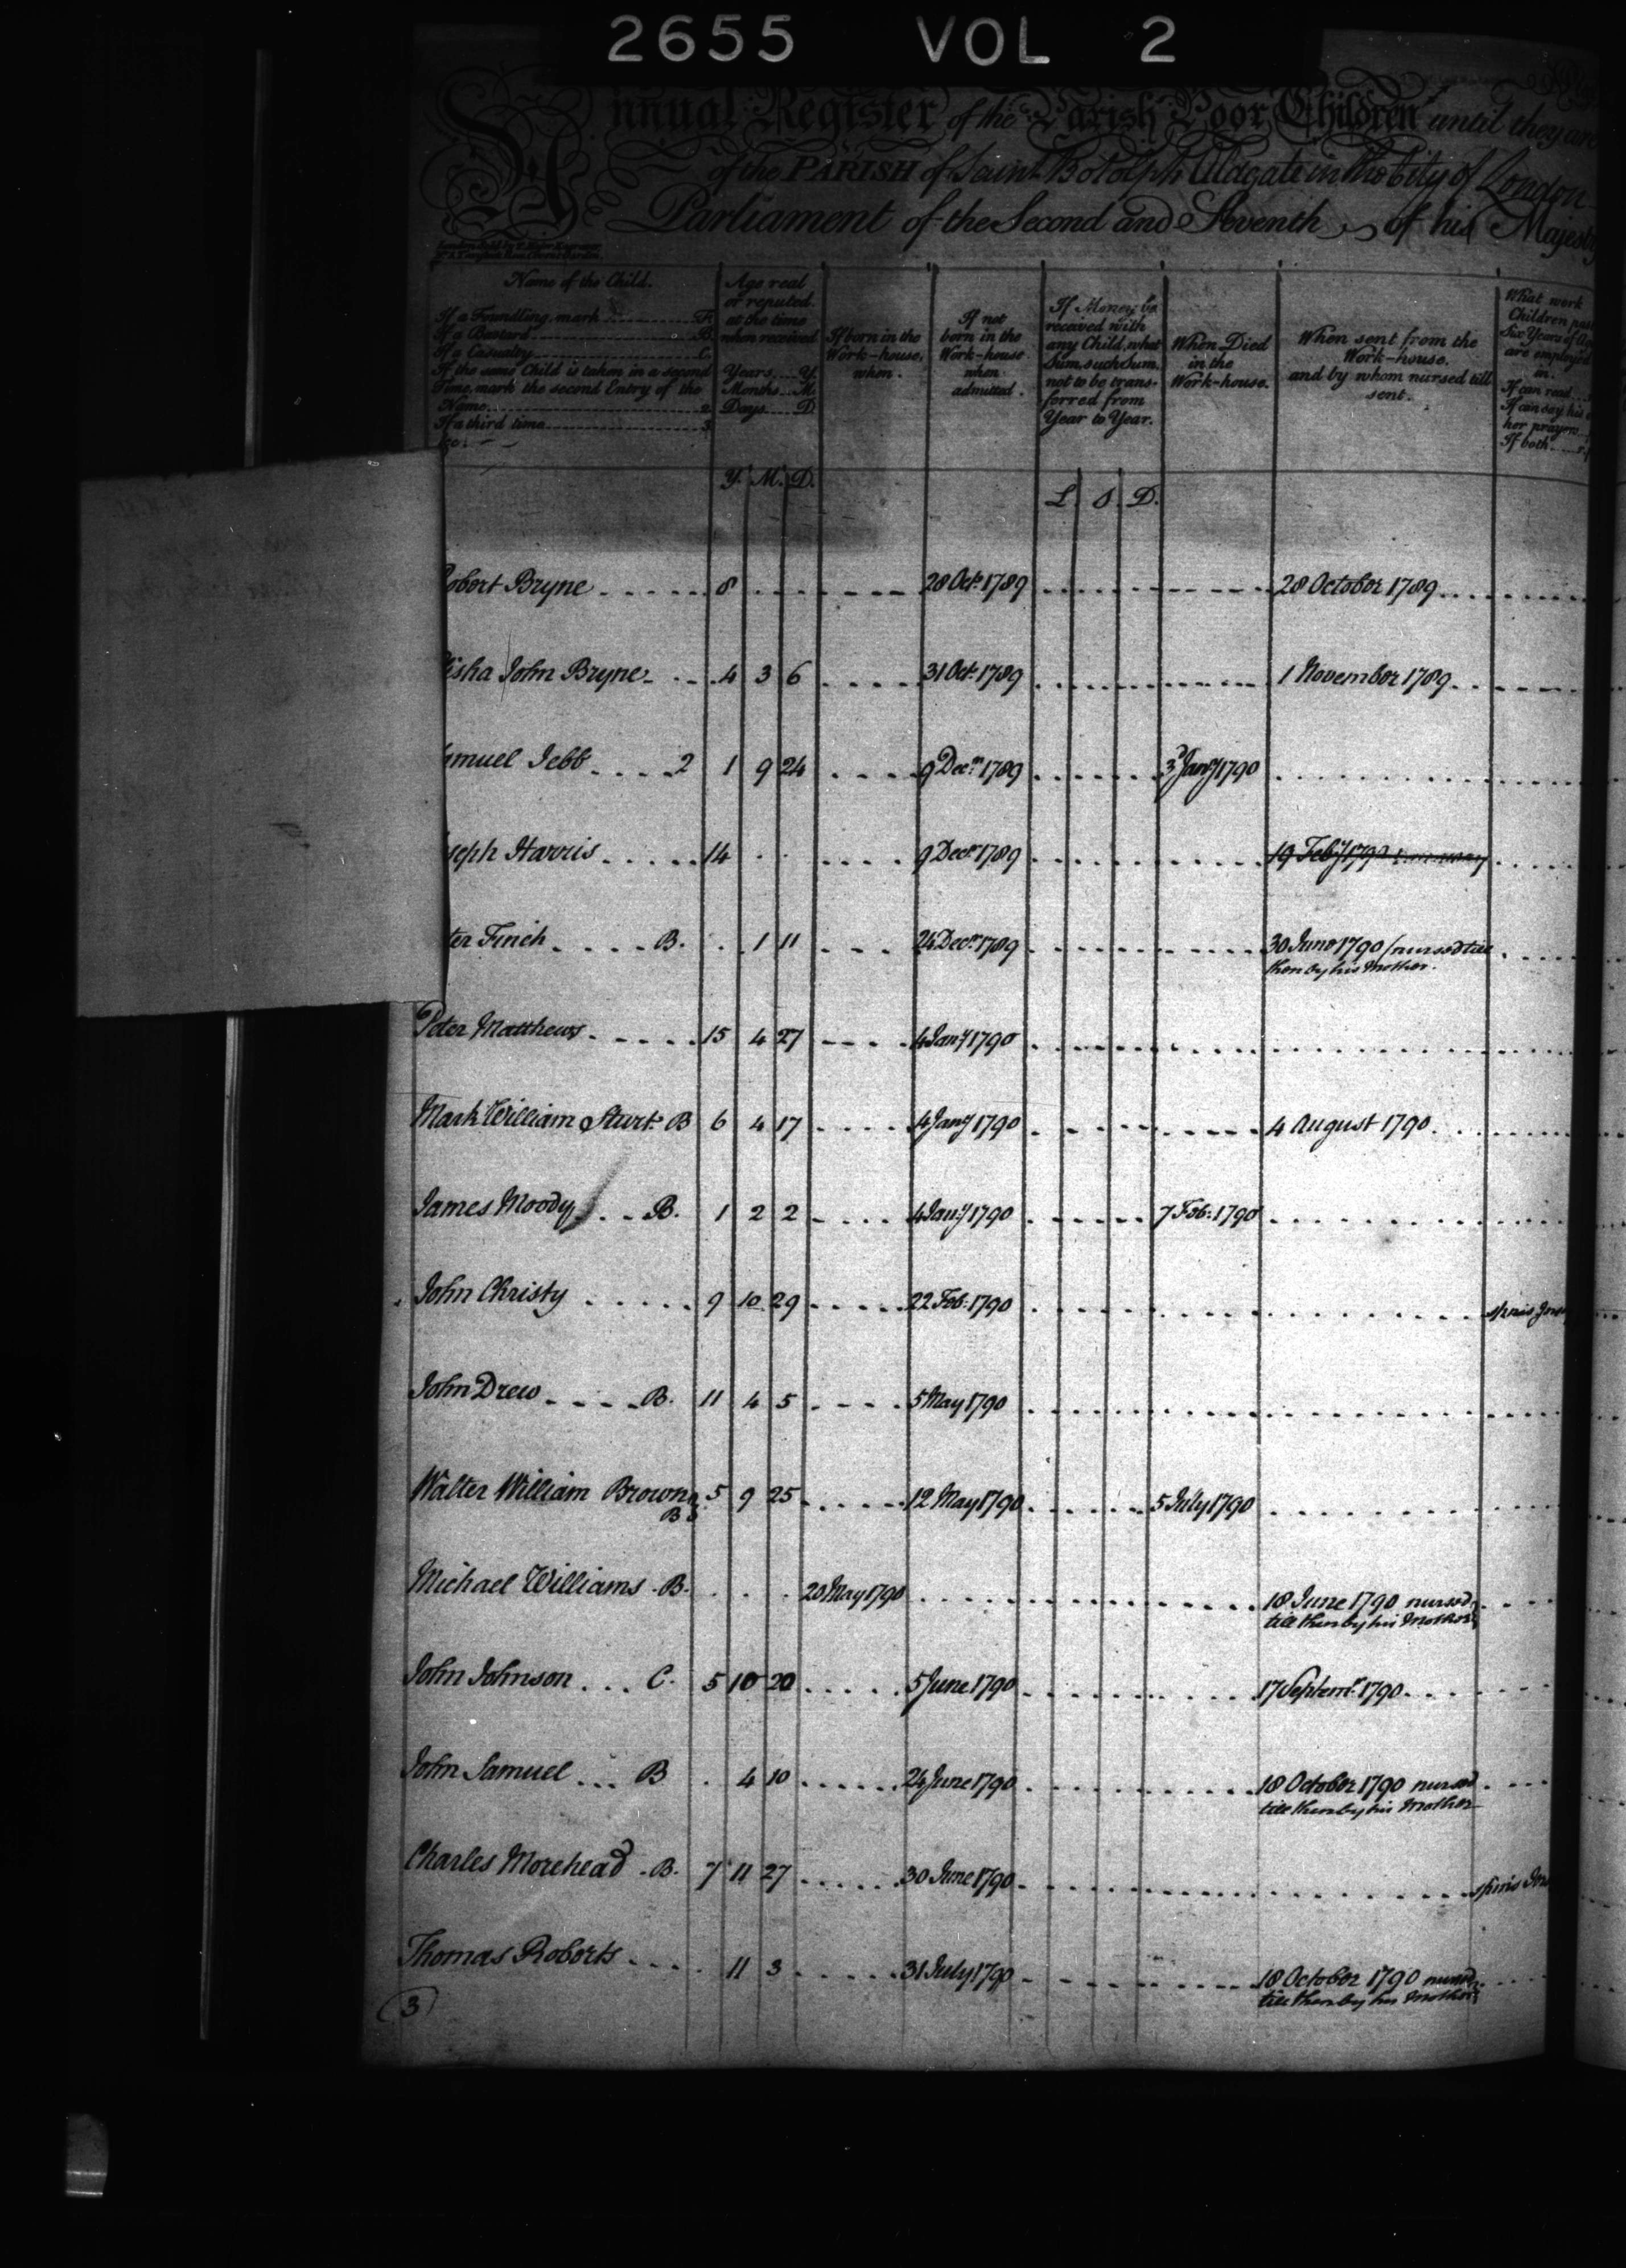 2655 VOL 2
Annual Register of the Parish Poor Children until they are
of the PARISH of Saint Botolph Aldgate in the City of London
Parliament of the Second and Seventh of his Majesty
Name of the Child.
If a Foundling, mark F.
If a Bastard B.
If a Casualty C.
If the same Child is taken in a second
Time, mark the second Entry of the
Name 2
If a third time 3
&c.
Age real
or reputed
at the time
when received
Years Y.
Months M.
Days D.
If born in the
Work-house,
when.
If not
born in the
Work-house
when
admitted.
If Money be
received with
any Child, what
Sum, such Sum
not to be trans-
ferred from
Year to Year.
When Died
in the
Work-house.
When sent from the
Work-house.
and by whom nursed till
sent.
What work
Children past
Six Years of Age
are employed
in.
If can read
If can say his or
her prayers
If both
Y. M. D. £ S. D.
obert Bryne 8 28 Oct. 1789 28 October 1789
isha John Bryne 4 3 6 31 Oct. 1789 1 November 1789
muel Jebb 2 1 9 24 9 Decr. 1789 3d Jany 1790
seph Harris 14 9 Decr. 1789 19 Feby 1790
ter Finch B. 1 11 24 Decr. 1789 30 June 1790 / nursed till
then by his Mother.
Peter Matthews 15 4 27 4 Jany 1790
Mark William Sturt B 6 4 17 4 Jany 1790 4 August 1790
James Moody B. 1 2 2 4 Jany 1790 7 Feb: 1790
John Christy 9 10 29 22 Feb: 1790 spins
John Drew B. 11 4 5 5 May 1790
Walter William Brown 5 9 25 12 May 1790 5 July 1790
B
Michael Williams B. 20 May 1790 18 June 1790 nursed
till then by his Mother
John Johnson C. 5 10 20 5 June 1790 17 Septemr. 1790
John Samuel B 4 10 24 June 1790 18 October 1790 nursed
till then by his Mother
Charles Morehead B. 7 11 27 30 June 1790 spins
Thomas Roberts 11 3 31 July 1790 18 October 1790 nursed
till then by his Mother
3